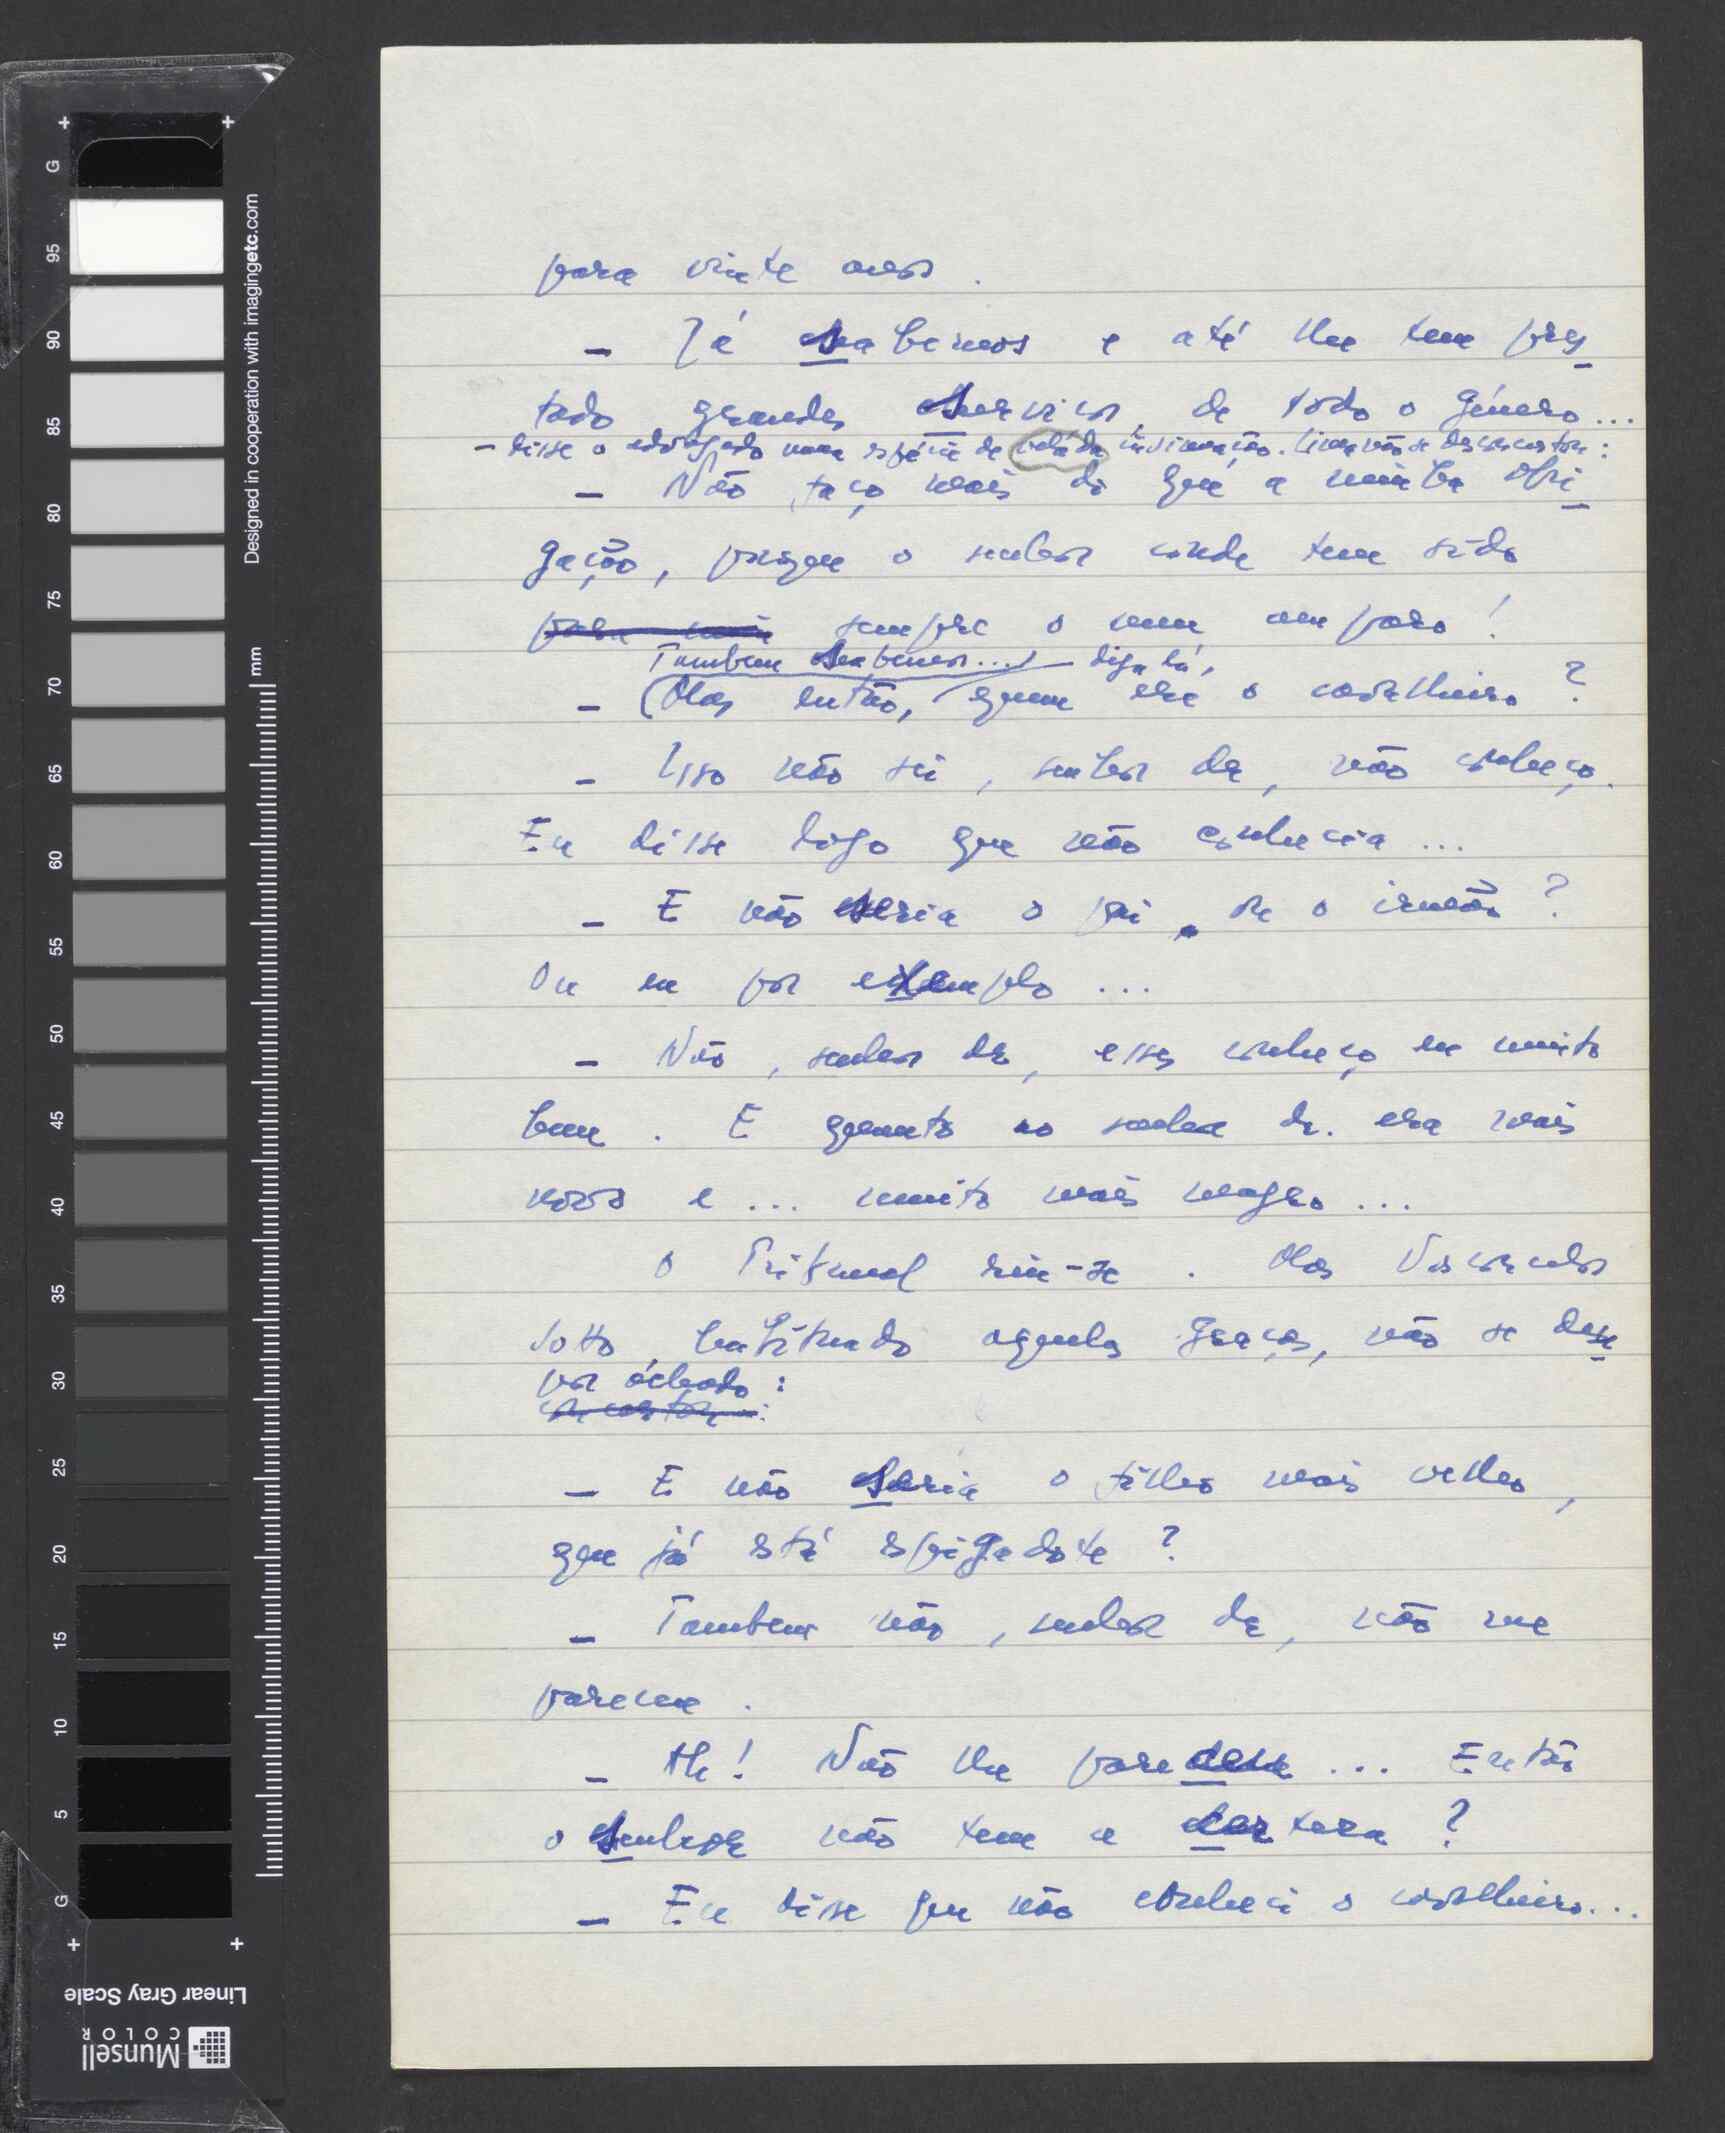 para vinte anos.
– Já sabemos e até lhe tem pres
tado grandes serviços, de todo o género...
– disse o advogado numa espécie de velada insinuação. Lima não se desconcertou:
– Não faço mais do que a minha obri
gação, porque o senhor conde tem sido
para mim sempre o meu amparo!
Tambem sabemos... diga lá,
– Mas então, quem era o cavalheiro?
– Isso não sei, senhor dr, não conheço.
Eu disse logo que não conhecia...
– E não seria o pai, ou o irmão?
Ou eu por exemplo...
– Não, senhor dr, esses conheço eu muito
bem. E quanto ao senhor dr. era mais
novo e... muito mais magro...
O Tribunal riu-se. Mas Vasconcelos
Sotto, habituado aquelas graças, não se deu
por achado:
concertou:
– E não seria o filho mais velho,
que já está espigadote?
– Tambem não, senhor dr, não me
pareceu.
– Ah! Não lhe pareceu... Então
o senhor não tem a certeza?
– Eu disse que não conheci o cavalheiro...
G
95
90
85
80
75
70
65
60
55
50
45
40
35
30
25
20
15
10
5
G
mm
Designed in cooperation with imagingetc.com
Linear Gray Scale
Munsell
COLOR